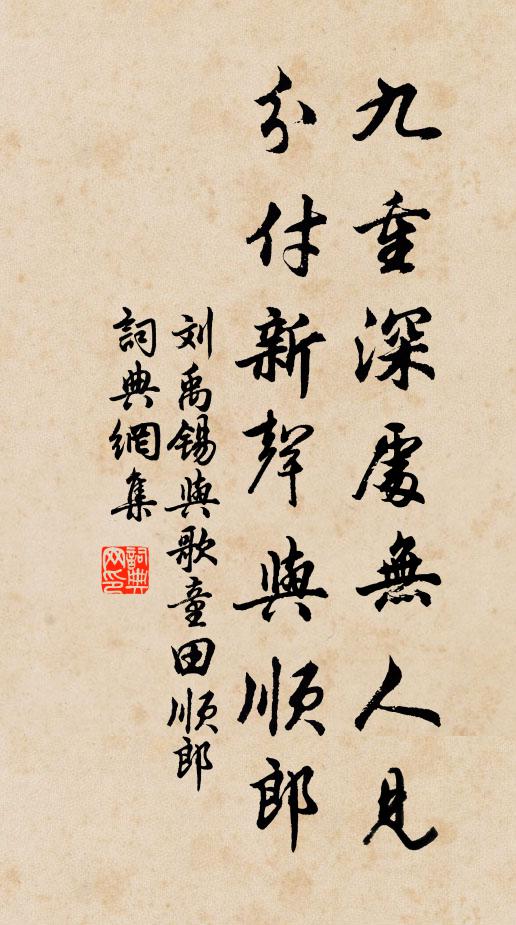 九重深處無人見
分付新聲與順郎
刘禹锡與歌童田順郎
詞典網集
詞典網印